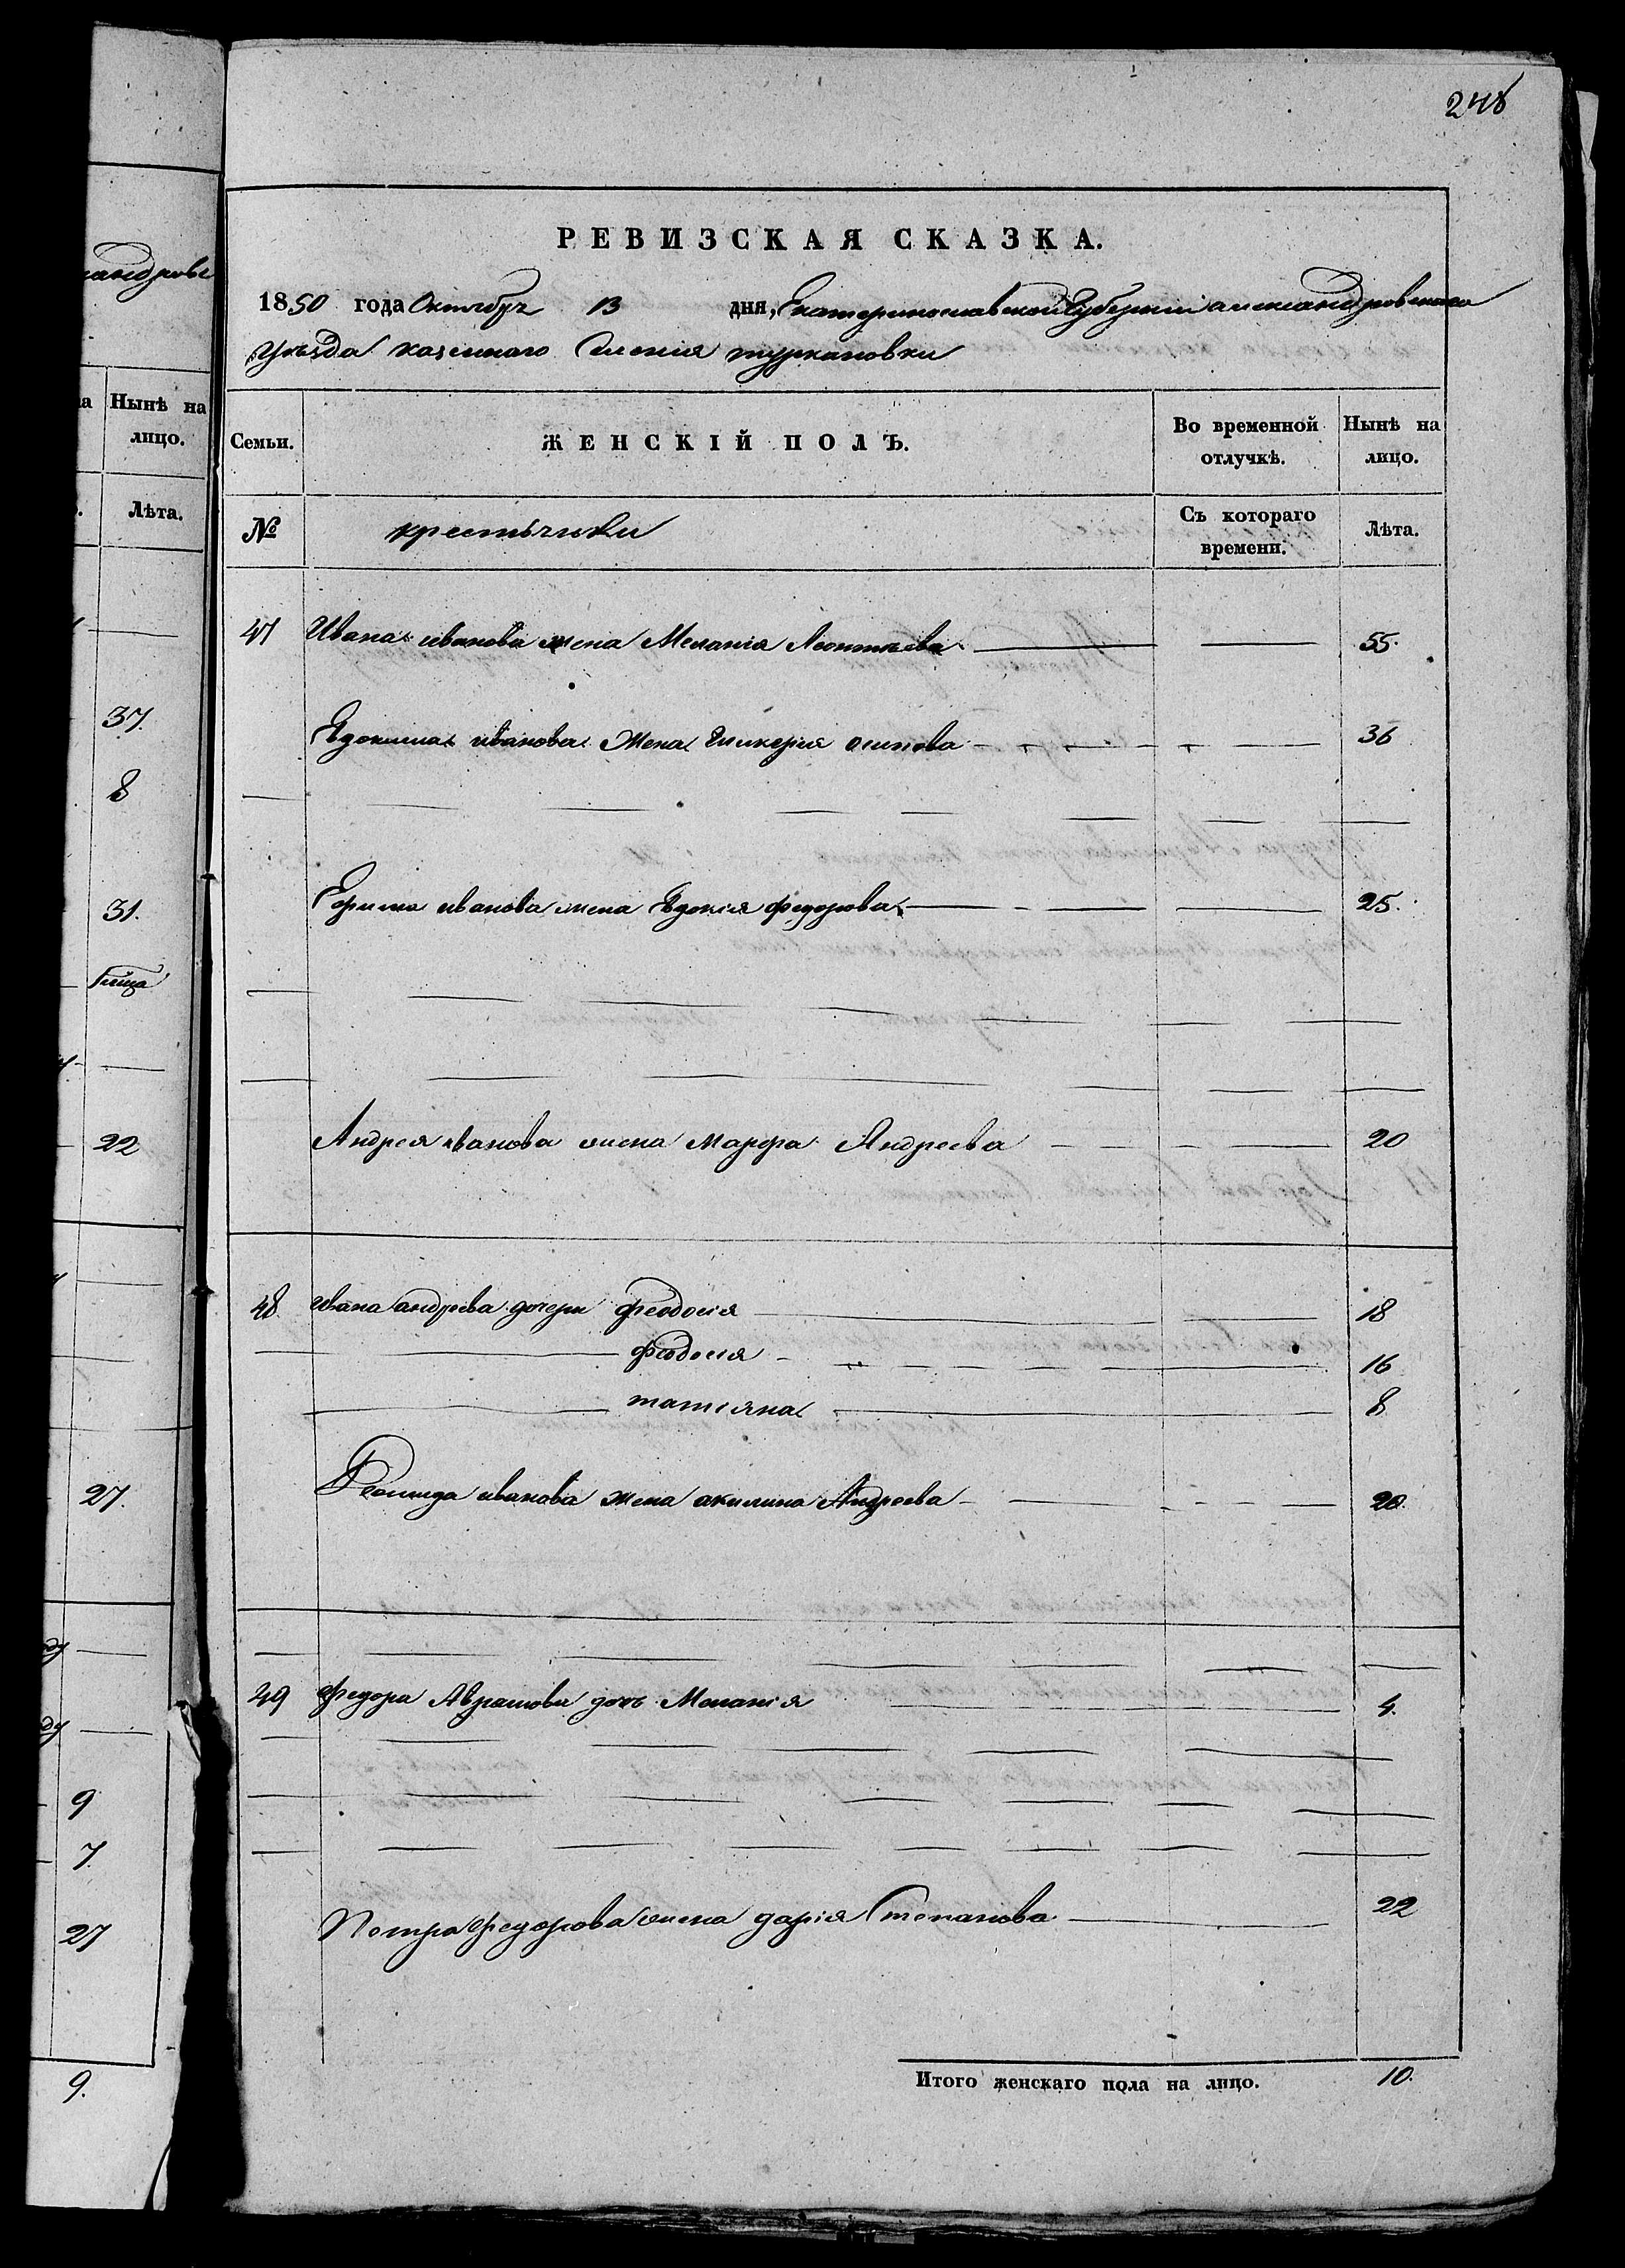 248
РЕВИЗСКАЯ СКАЗКА.
1850 года Октября 13 дня, Екатеринославской Губерніи александровскаго
Уезда казеннаго Селенія туркановки
Нынѣ на лицо.
Лѣта.
37.
8
31.
22
27.
9
7.
27
9.
Семьи. ЖЕНСКІЙ ПОЛЪ. Во временной отлучкѣ. Нынѣ на лицо.
№ крестьянки Съ котораго времени. Лѣта.
47 Ивана иванова жена Меланія Леонтьева 55.
Евдокима иванова жена Гликерія осипова 36
Ефима иванова жена Евдокія федорова 25.
Андрея иванова жена марфа Андреева 20
48 Ивана андреева дочери феодосія 18
федосія 16
татіяна 8
Леонида иванова жена акилина Андреева 20.
49 федора Аврамова дочь Меланія 4.
Петра федорова жена дарія Степанова 22
Итого женскаго пола на лицо. 10.